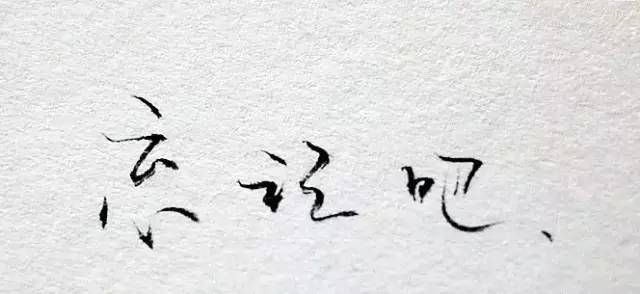 忘记吧、